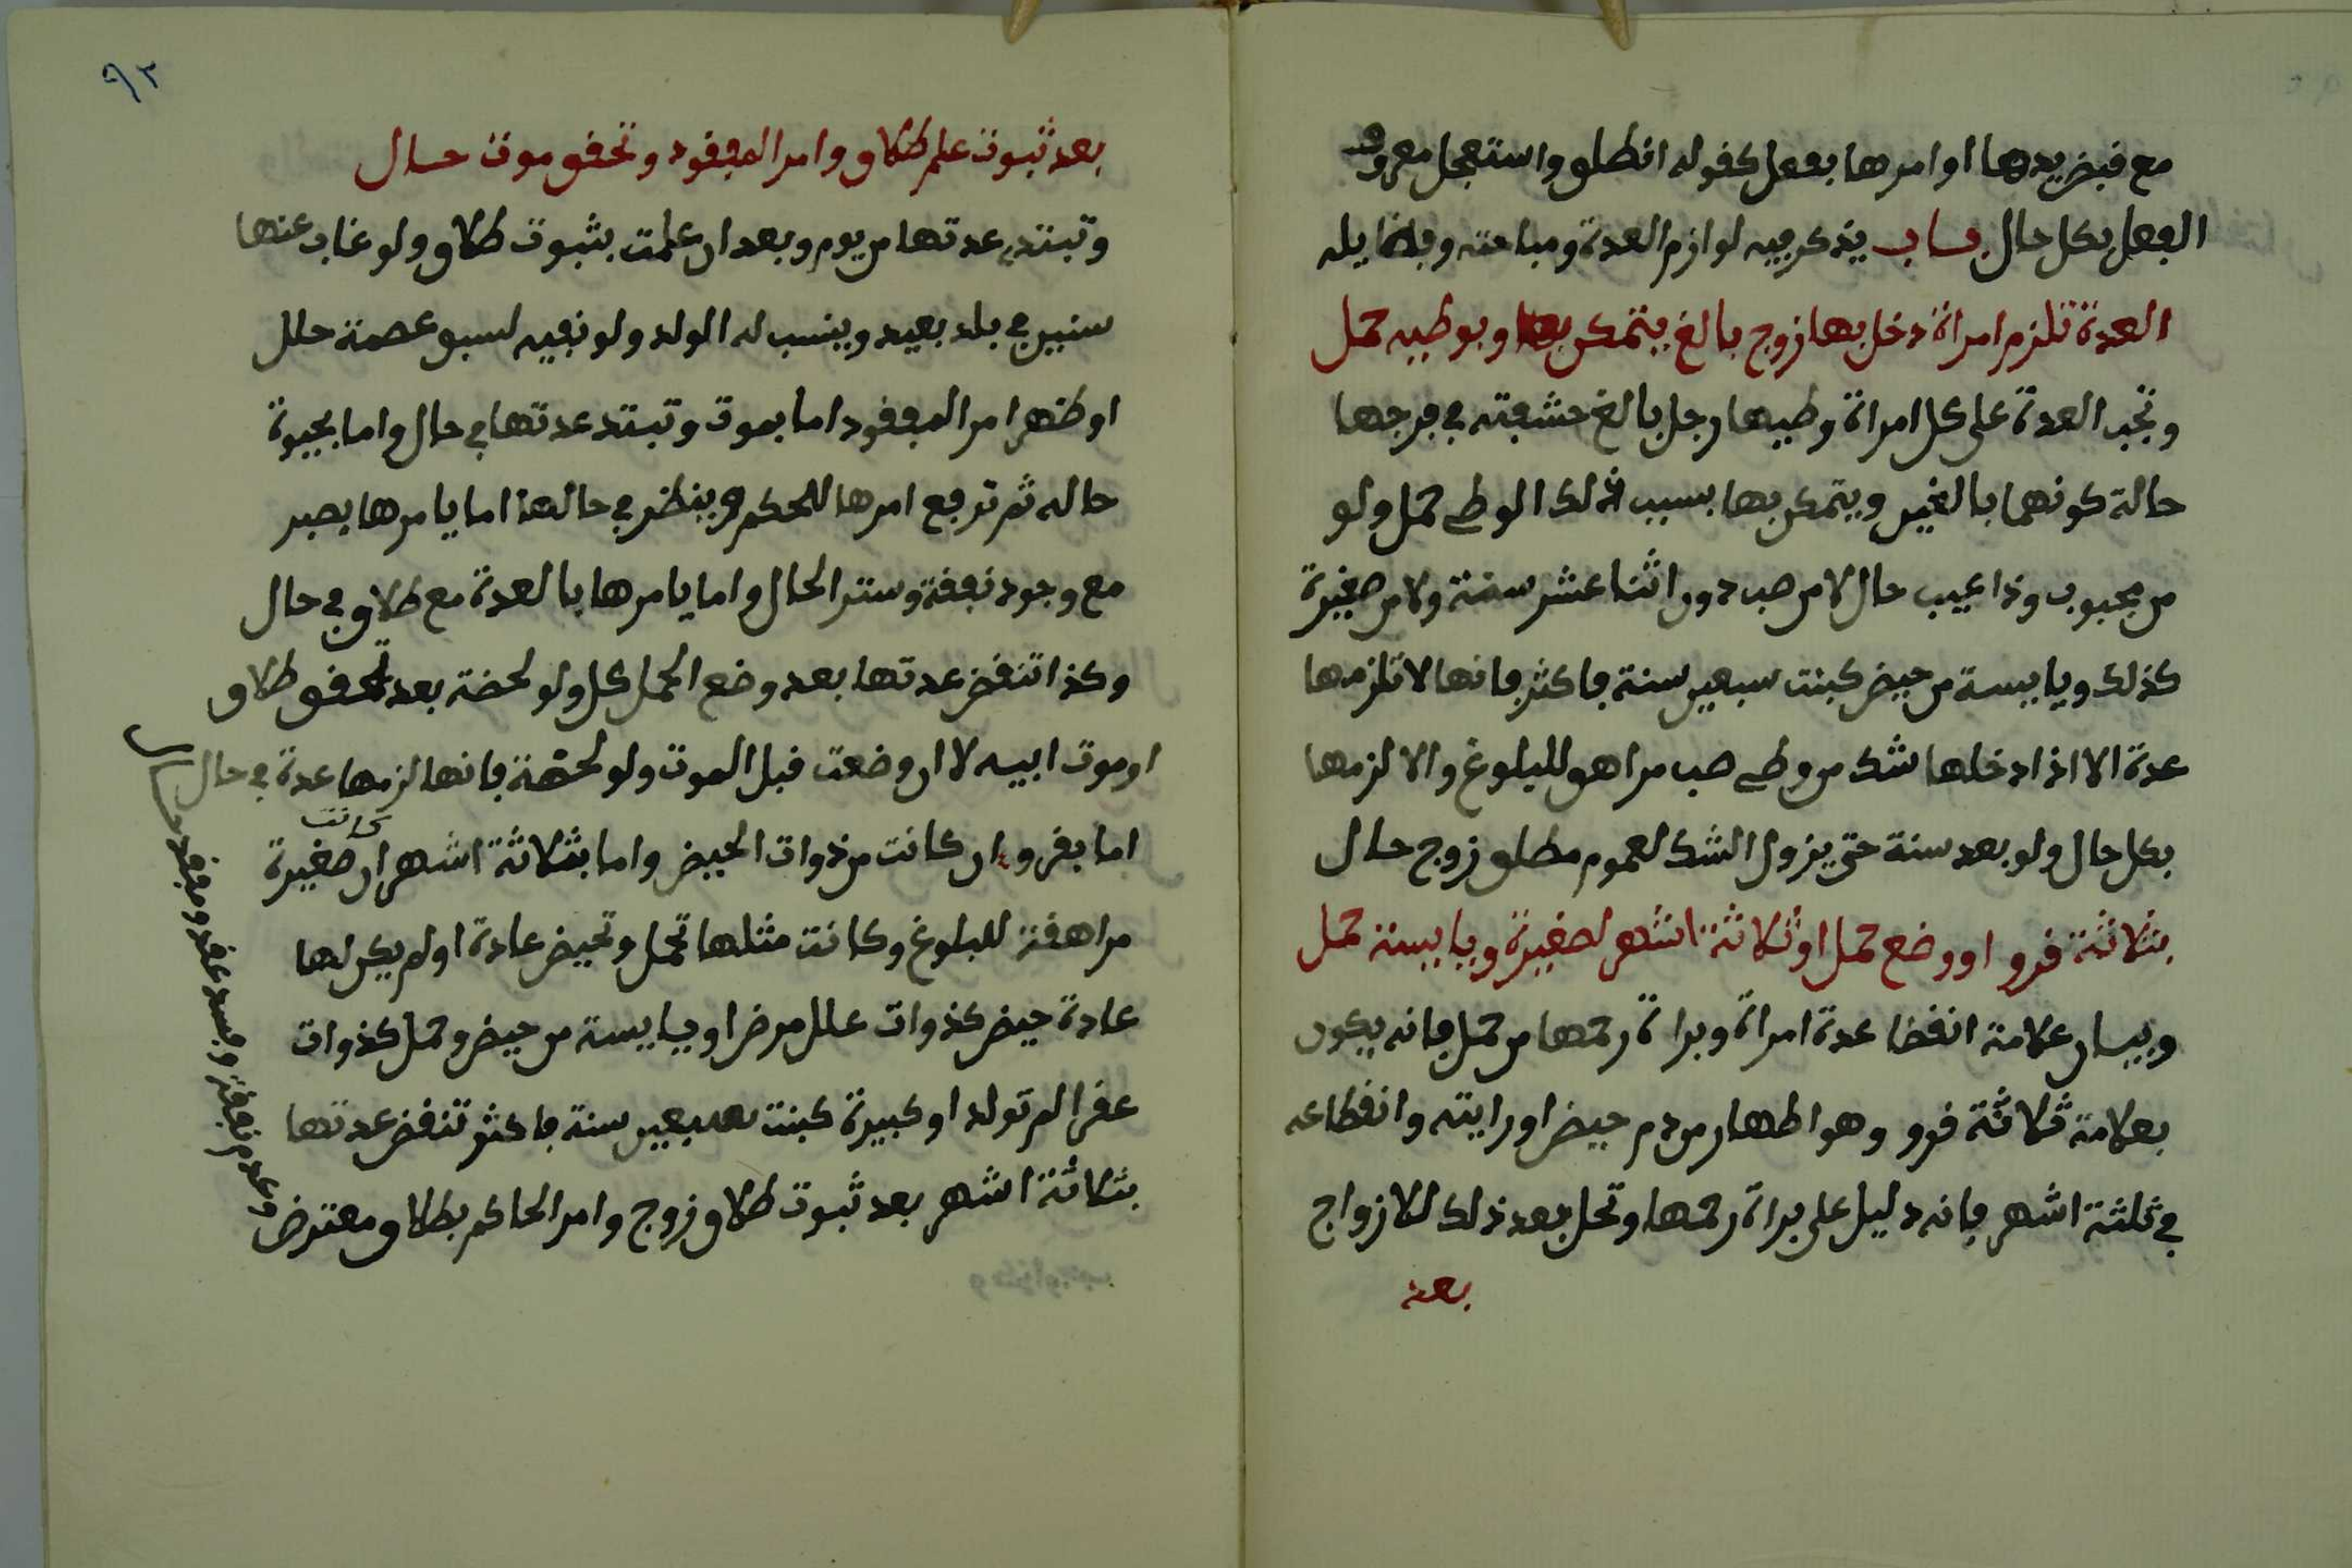 مع قبض يدها او امرها بفعل كقوله انطلق واستعجل معروف
الفعل بكل حال باب يذكر فيه لوازم العدة ومباحته
العدة تلزم امراة دخل بها زوج بالغ يتمكن بها وبوطيه حمل
وتجب العدة على كل امراة وطيها رجل بالغ حشفته في فرجها
حالة كونهما بالغين ويتمكن بها بسبب ذلك الوطء حمل ولو
من مجبوب وذا عيب حال لا من صب دون اثنا عشر سنة ولا من صغيرة
كذلك ويايسة من حيض كبنت سبعين سنة فاكثر فانها لا تلزمها
عدة الا اذا دخلها شك من وطء صب مراهق للبلوغ والا لزمها
بكل حال ولو بعد سنة حتى يزول الشك لعموم مطلق زوج حلال
بثلاثة قرو او وضع حمل او ثلاثة اشهر لصغيرة ويايسة حمل
وبيان علامة انقضا عدة امراة وبراة رحمها من حمل فانه يكون
بعلامة ثلاثة قرو وهو اطهار من دم حيض او رايته وانقطاعه
في ثلثة اشهر فانه دليل على براة رحمها وتحل بعد ذلك للازواج
بعد
٩٢
بعد ثبوت علم طلاق وامر المفقود وتحقق موت حال
وتبتدي عدتها من يوم وبعد ان علمت بثبوت طلاق ولو غاب عنها
سنين في بلد بعيد وينسب له الولد ولو نفيه لسبق عصمة حلل
او ظهر امر المفقود اما بموت وتبتد عدتها في حال واما بحيوة
حاله ثم ترفع امرها للحكم وينظر في حالها اما يامرها بصبر
مع وجود نفقة وستر الحال واما يامرها بالعدة مع طلاق في حال
وكذا تنقض عدتها بعد وضع الحمل كل ولو لحضة بعد تحقق طلاق
او موت ابيه لا ان وضعت قبل الموت ولو لحضة فانها لزمها عدة في حال
اما بقرو ان كانت من ذوات الحيض واما بثلاثة اشهر ان كانت صغيرة
مراهقة للبلوغ وكانت مثلها تحمل وتحيض عادة او لم يكن لها
عادة حيض كذوات علل مرض او يايسة من حيض وحمل كذوات
عقر لم تولد او كبيرة كبنت سبعين سنة فاكثر تنقض عدتها
بثلاثة اشهر بعد ثبوت طلاق زوج وامر الحاكم بطلاق معترض
وعدم نفقة وفسد عقد ومفقد حال